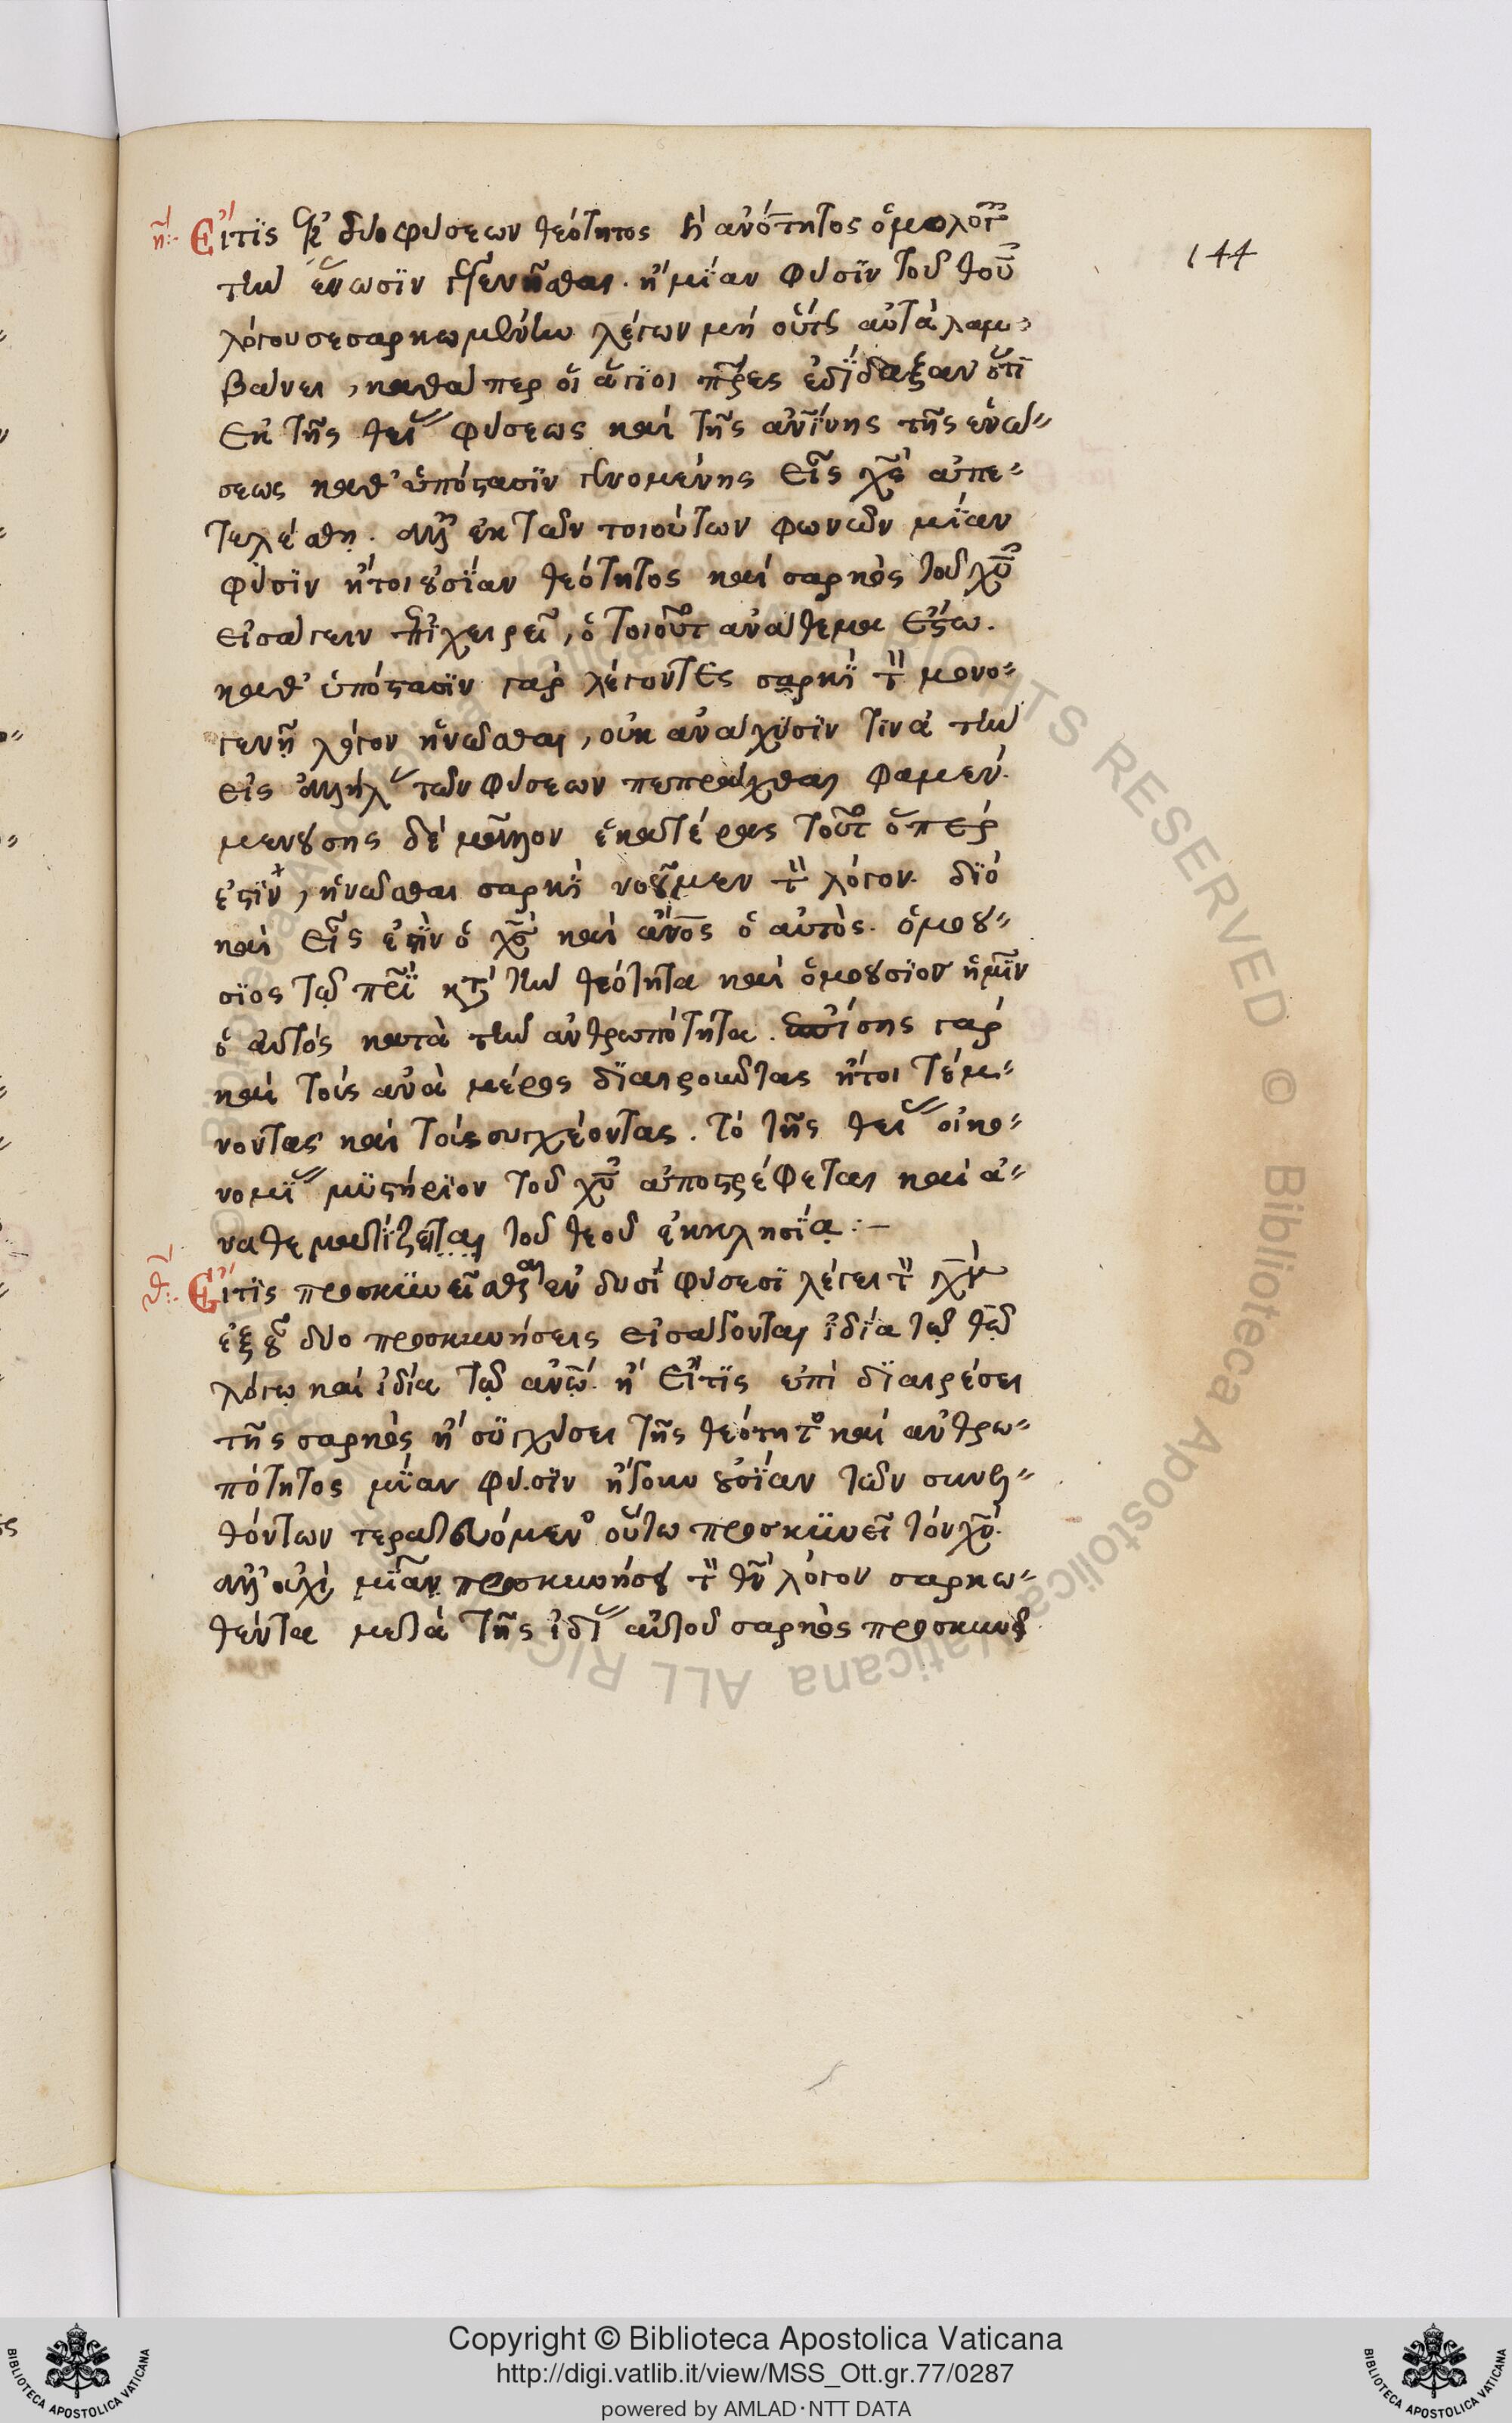 144
η´ Εἴ τις ἐκ δύο φύσεων θεότητος κ(αὶ) ἀνότητος ὁμολογ
τὴν ἕνωσιν γεγενῆσθαι. ἢ μίαν φύσιν τοῦ θου
λόγου σεσαρκωμένην λέγων μὴ οὕτως αὐτὰ λαμ-
βάνει, καθάπερ οἱ ἅγιοι πρες ἐδίδαξαν ὅτι
ἐκ τῆς θεί φύσεως καὶ τῆς ἀνίνης τῆς ἑνώ-
σεως καθ' ὑπόστασιν γενομένης εἷς χς ἀπε-
τελέσθη. ἀλλ' ἐκ τῶν τοιούτων φωνῶν μίαν
φύσιν ἤτοι οὐσίαν θεότητος καὶ σαρκὸς τοῦ χυ
εἰσάγειν ἐπιχειρεῖ, ὁ τοιοῦτ ἀνάθεμα ἔστω.
καθ' ὑπόστασιν γὰρ λέγοντες σαρκὶ τ μονο-
γενῆ λόγον ἡνῶσθαι, οὐκ ἀνάχυσιν τινὰ τὴν
εἰς ἀλλήλ τῶν φύσεων πεπρᾶχθαι φαμέν.
μενούσης δὲ μᾶλλον ἑκατέρας τοῦτ ὅπερ
ἐστὶν, ἡνῶσθαι σαρκὶ νοοῦμεν τ λόγον. διὸ
καὶ εἷς ἐστὶν ὁ χς καὶ ἄνος ὁ αὐτὸς. ὁμοού-
σιος τῷ πρὶ κατὰ τὴν θεότητα καὶ ὁμοούσιον ἡμῖν
ὁ αὐτὸς κατὰ τὴν ἀνθρωπότητα. ἐπίσης γὰρ
καὶ τοὺς ἀνὰ μέρος διαιροῦντας ἤτοι τέμ-
νοντας καὶ τοὺς συγχέοντας. τὸ τῆς θεί οἰκο-
νομί μυστήριον τοῦ χυ ἀποστρέφεται καὶ ἀ-
ναθεματίζεται τοῦ θεοῦ ἐκκλησία :-
θ´ Εἴ τις προσκυνεῖσθαι ἐν δυσὶ φύσεσι λέγει τ χν
ἐξ οὗ δύο προσκυνήσεις εἰσάγονται ἰδία τῷ θῶ
λόγω καὶ ἰδία τῷ ἀνω. ἢ εἴ τις ἐπὶ διαιρέσει
τῆς σαρκὸς ἢ συγχύσει τῆς θεότητ καὶ ἀνθρω-
πότητος μίαν φύσιν ἤγουν οὐσίαν τῶν συνελ-
θόντων τερατευόμεν οὕτω προσκυνεῖ τὸν χν.
ἀλλ' οὐχὶ μίαν προσκυνήσει τ θν λόγον σαρκω-
θέντα μετὰ τῆς ἰδί αὐτοῦ σαρκὸς προσκυνεῖ
Copyright © Biblioteca Apostolica Vaticana
http://digi.vatlib.it/view/MSS_Ott.gr.77/0287
powered by AMLAD·NTT DATA